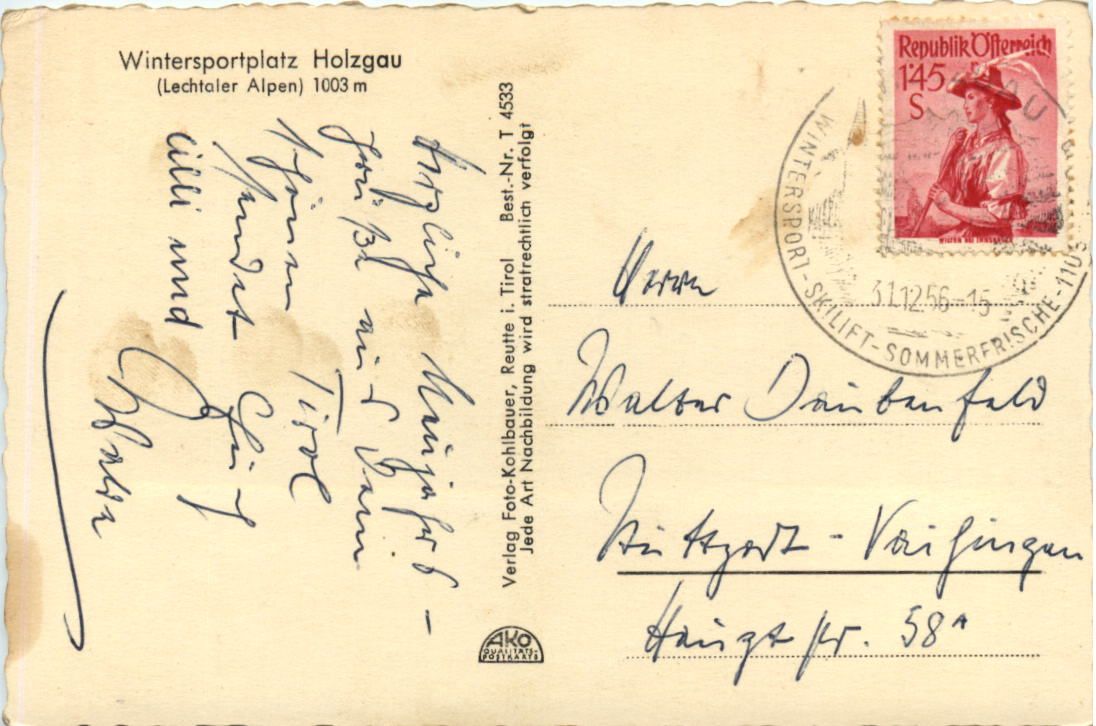 Wintersportplatz Holzgau
(Lechtaler Alpen) 1003 m
Herzliche Neujahrs-
grüße aus dem
schönen Tirol
sendet Euch
Cilli und
Verlag Foto-Kohlbauer, Reutte i. Tirol Best.-Nr. T 4533
Jede Art Nachbildung wird strafrechtlich verfolgt
AKO
QUALITÄTS-
POSTKARTE
Republik Österreich
1·45
S
WILTEN BEI INNSBRUCK
WINTERSPORT-SKILIFT-SOMMERFRISCHE-1103
31.12.56-15
Herrn
Walter Daubenfeld
Stuttgart - Vaihingen
Hauptstr. 58A